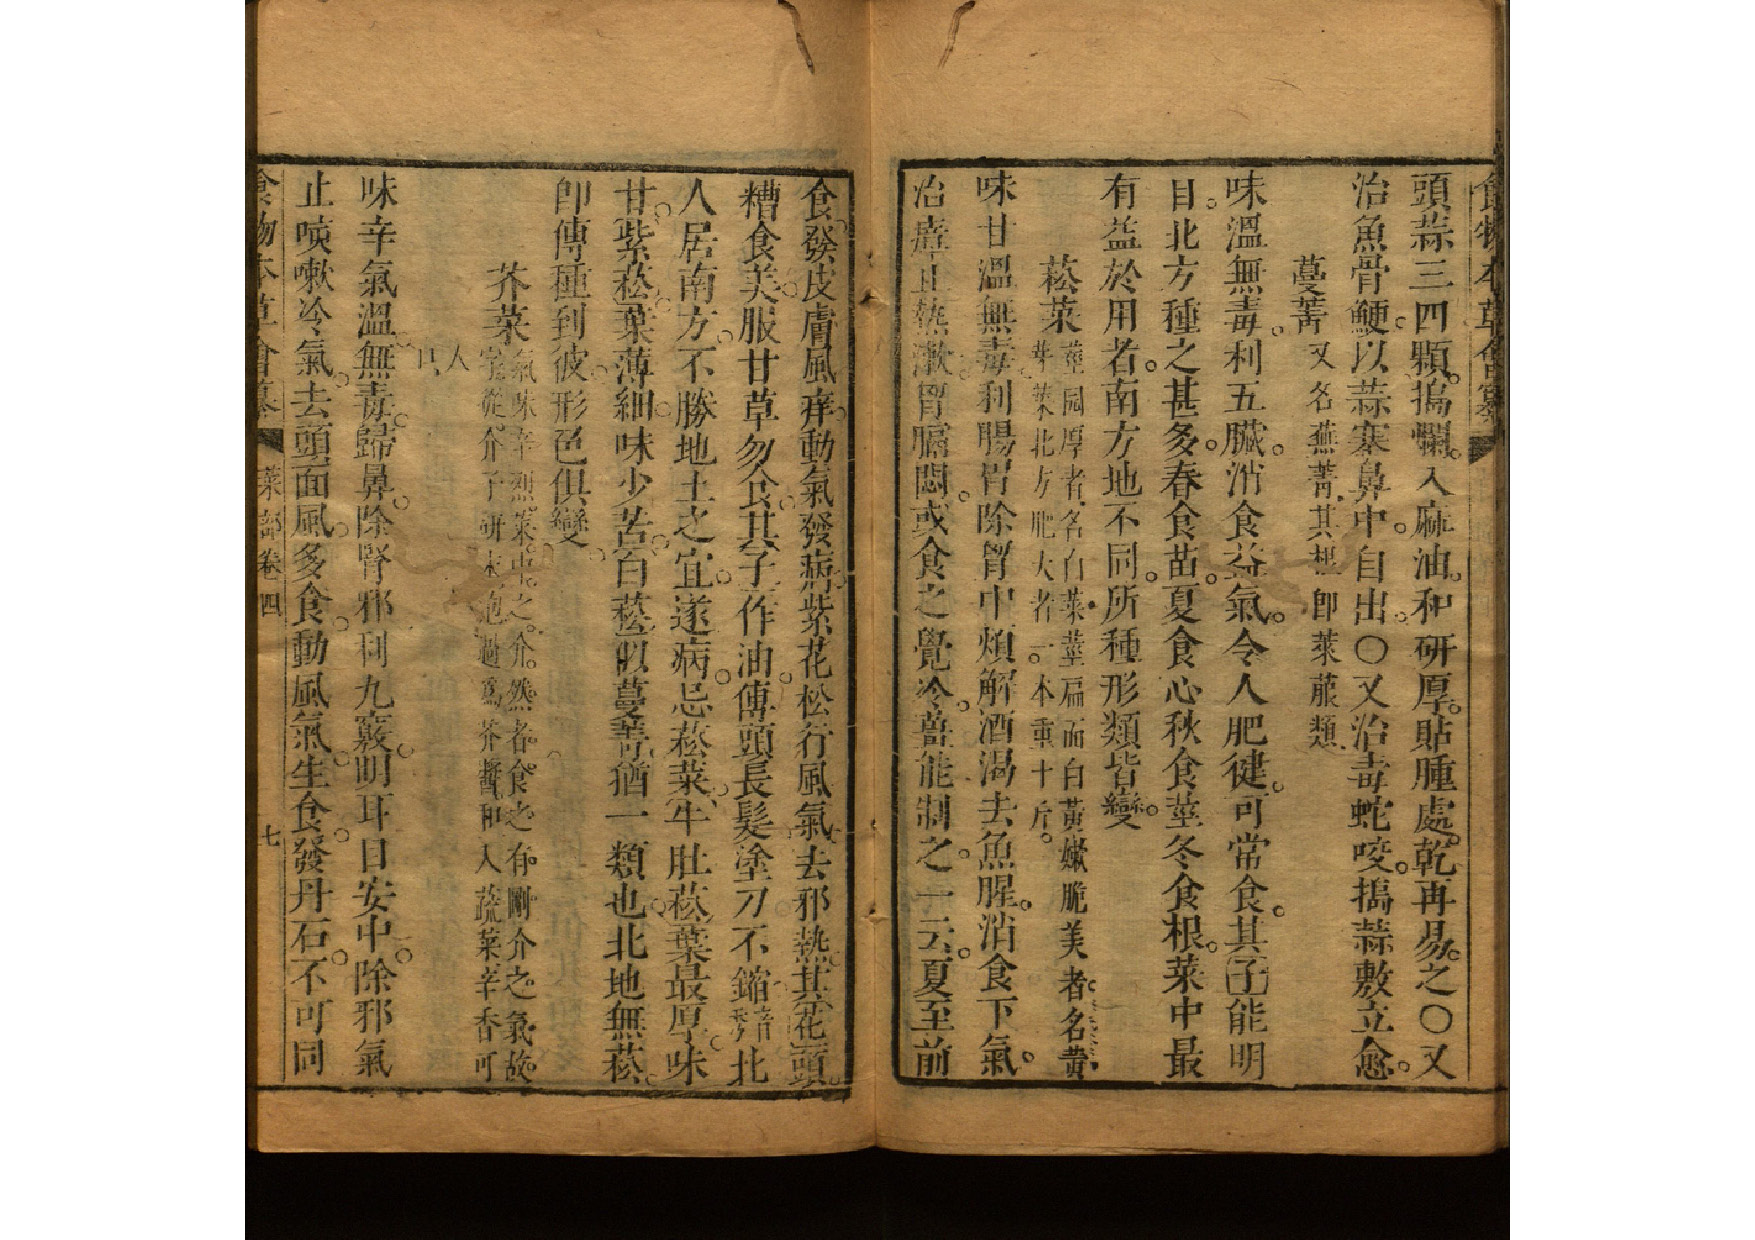 食物本草會纂
頭蒜三四顆。搗爛。入麻油。和研厚。貼腫處。乾再易之〇又
治魚骨鯁。以蒜塞鼻中。自出。〇又治毒蛇咬。搗蒜敷立愈。
蔓菁又名蕪菁。其根即萊菔類。
味溫無毒。利五臟。消食益氣。令人肥健。可常食。其子能明
目。北方種之甚多。春食苗。夏食心秋食莖冬食根。菜中最
有益於用者。南方地不同。所種形類皆變。
菘菜莖圓厚者。名白菜。莖扁而白黃嫩脆美者。名黃
芽菜。北方肥大者。一本重十斤。
味甘溫無毒。利腸胃除胸中煩解酒渴去魚腥。消食下氣。
治瘴止熱漱。胃膈悶。或食之覺冷。薑能制之。一云。夏至前
食。發皮膚風痒。動氣發病。紫花菘行風氣。去邪熱。其花頭。
糟食美。服甘草勿食。其子作油。傅頭長髮。塗刀不䤃音秀北
人居南方。不勝地土之宜。遂病。忌菘菜。牛肚菘葉最厚。味
甘。紫菘葉薄細。味少苦。白菘似蔓菁。猶一類也。北地無菘。
即傳種到彼。形色俱變。
芥菜氣味辛烈。菜中之介。然者。食之有剛介之氣。故
字從介。子研末泡過爲芥醬和入蔬菜辛香可
人口
味辛氣溫無毒。歸鼻。除腎邪利九竅。明耳目安中。除邪氣
止咳嗽冷氣。去頭面風。多食。動風氣。生食。發丹石。不可同
食物本草會纂
菜部卷四
七